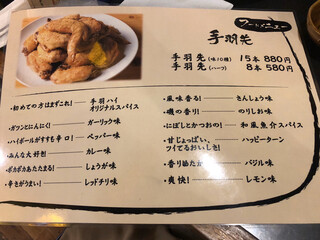 フードメニュー
手羽先
手羽先(味10種) 15本 880円
手羽先(ハーフ) 8本 580円
・初めての方はまずこれ! 手羽ハイオリジナルスパイス
・ガツンとにんにく! ガーリック味
・ハイボールがすすむ辛口! ペッパー味
・みんな大好き! カレー味
・ポカポカあたたまる! しょうが味
・辛さがうまい! レッドチリ味
・風味香る! さんしょう味
・磯の香り! のりしお味
・にぼしとかつおの! 和風魚介スパイス
・甘じょっぱい、ツイてるおいしさ! ハッピーターン
・香り始めた バジル味
・爽快! レモン味